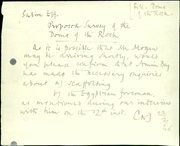 Selim Eff.
Proposed Survey of the
Dome of the Rock
As it is possible that Mr Hogan
may be arriving shortly, would
you please confirm that Amin Bey
has made the necessary inquiries
about a) scaffolding
b) the Egyptian foreman
as mentioned during our interview
with him on the 12th inst.